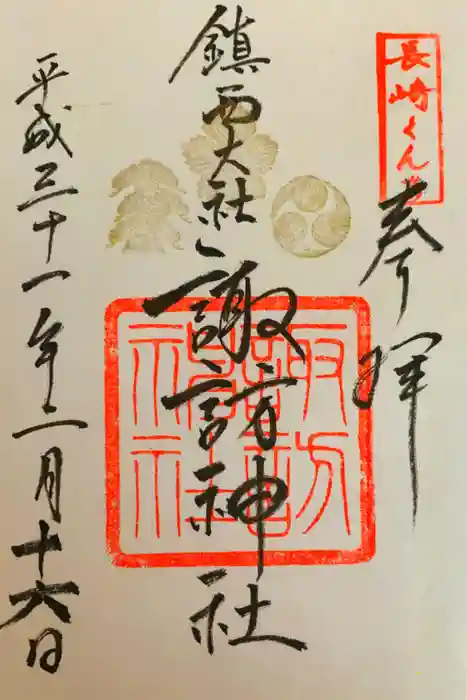 長崎くんち
奉拝
鎮西大社
諏訪神社
諏訪神社
平成三十一年二月十六日